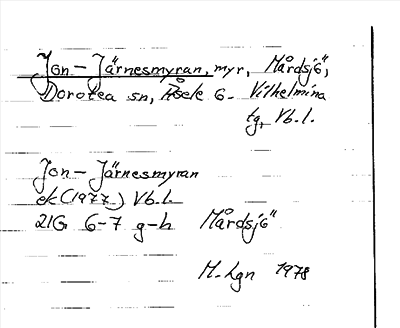 Jon-Järnesmyran, myr, Mårdsjö,
Dorotea sn, Åsele o. Vilhelmina
tg, Vb.l.
Jon-Järnesmyran
ek (1977) Vb.l.
21G 6-7 g-h Mårdsjö
M-Lgn 1978